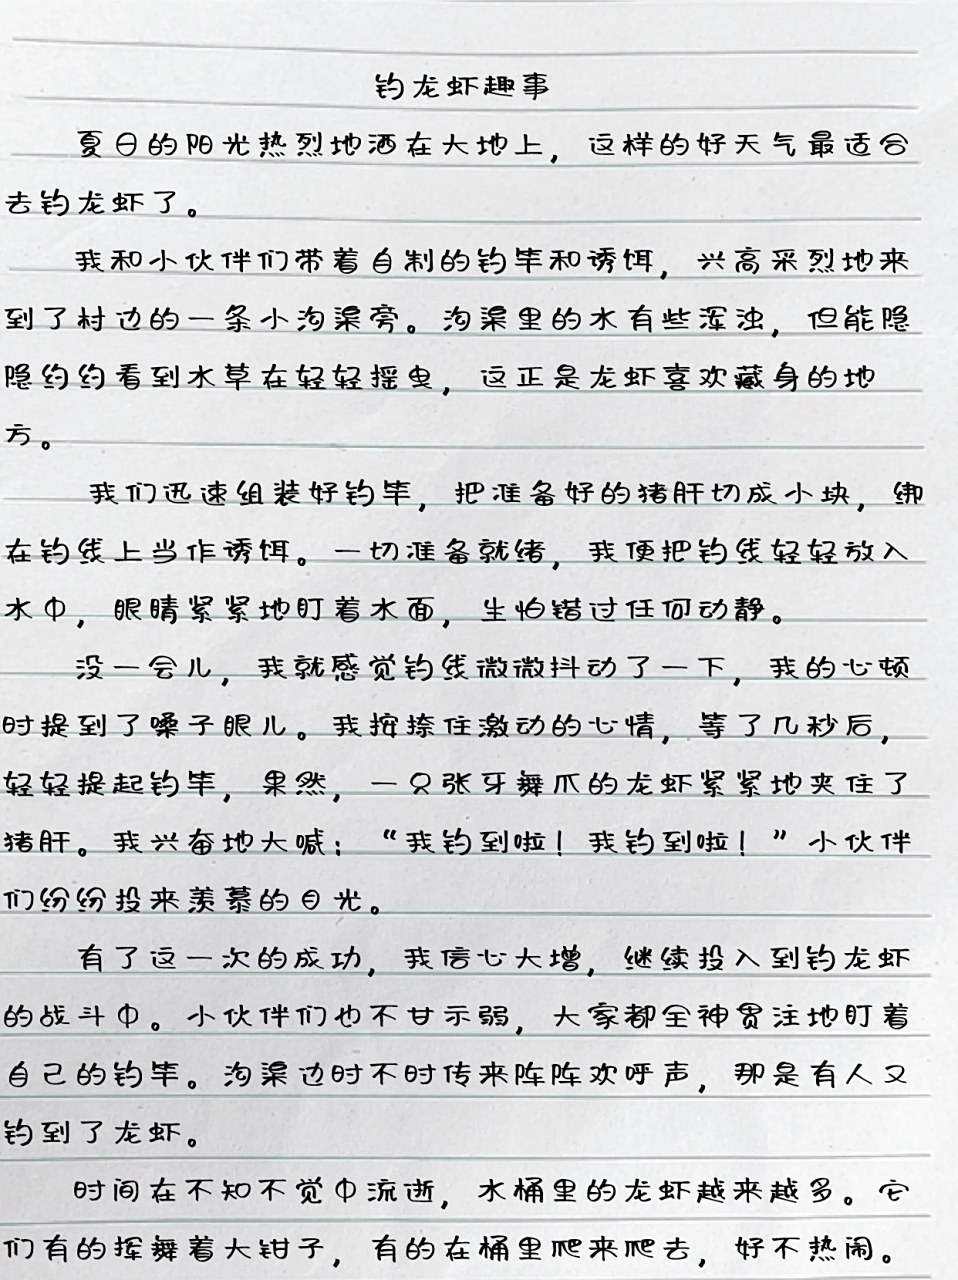 钓龙虾趣事
夏日的阳光热烈地洒在大地上，这样的好天气最适合
去钓龙虾了。
我和小伙伴们带着自制的钓竿和诱饵，兴高采烈地来
到了村边的一条小沟渠旁。沟渠里的水有些浑浊，但能隐
隐约约看到水草在轻轻摇曳，这正是龙虾喜欢藏身的地
方。
我们迅速组装好钓竿，把准备好的猪肝切成小块，绑
在钓线上当作诱饵。一切准备就绪，我便把钓线轻轻放入
水中，眼睛紧紧地盯着水面，生怕错过任何动静。
没一会儿，我就感觉钓线微微抖动了一下，我的心顿
时提到了嗓子眼儿。我按捺住激动的心情，等了几秒后，
轻轻提起钓竿，果然，一只张牙舞爪的龙虾紧紧地夹住了
猪肝。我兴奋地大喊：“我钓到啦！我钓到啦！”小伙伴
们纷纷投来羡慕的目光。
有了这一次的成功，我信心大增，继续投入到钓龙虾
的战斗中。小伙伴们也不甘示弱，大家都全神贯注地盯着
自己的钓竿。沟渠边时不时传来阵阵欢呼声，那是有人又
钓到了龙虾。
时间在不知不觉中流逝，水桶里的龙虾越来越多。它
们有的挥舞着大钳子，有的在桶里爬来爬去，好不热闹。